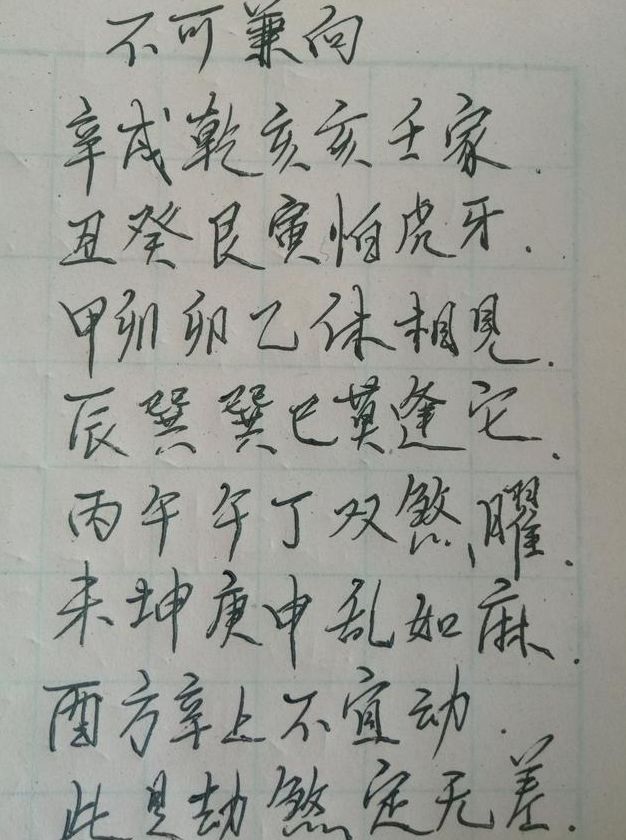 不可兼向
辛戌乾亥亥壬家.
丑癸艮寅怕虎牙.
甲卯卯乙休相見.
辰巽巽巳莫逢它.
丙午午丁双煞曜.
未坤庚申乱如麻.
酉方辛上不宜动.
此是劫煞定无差.